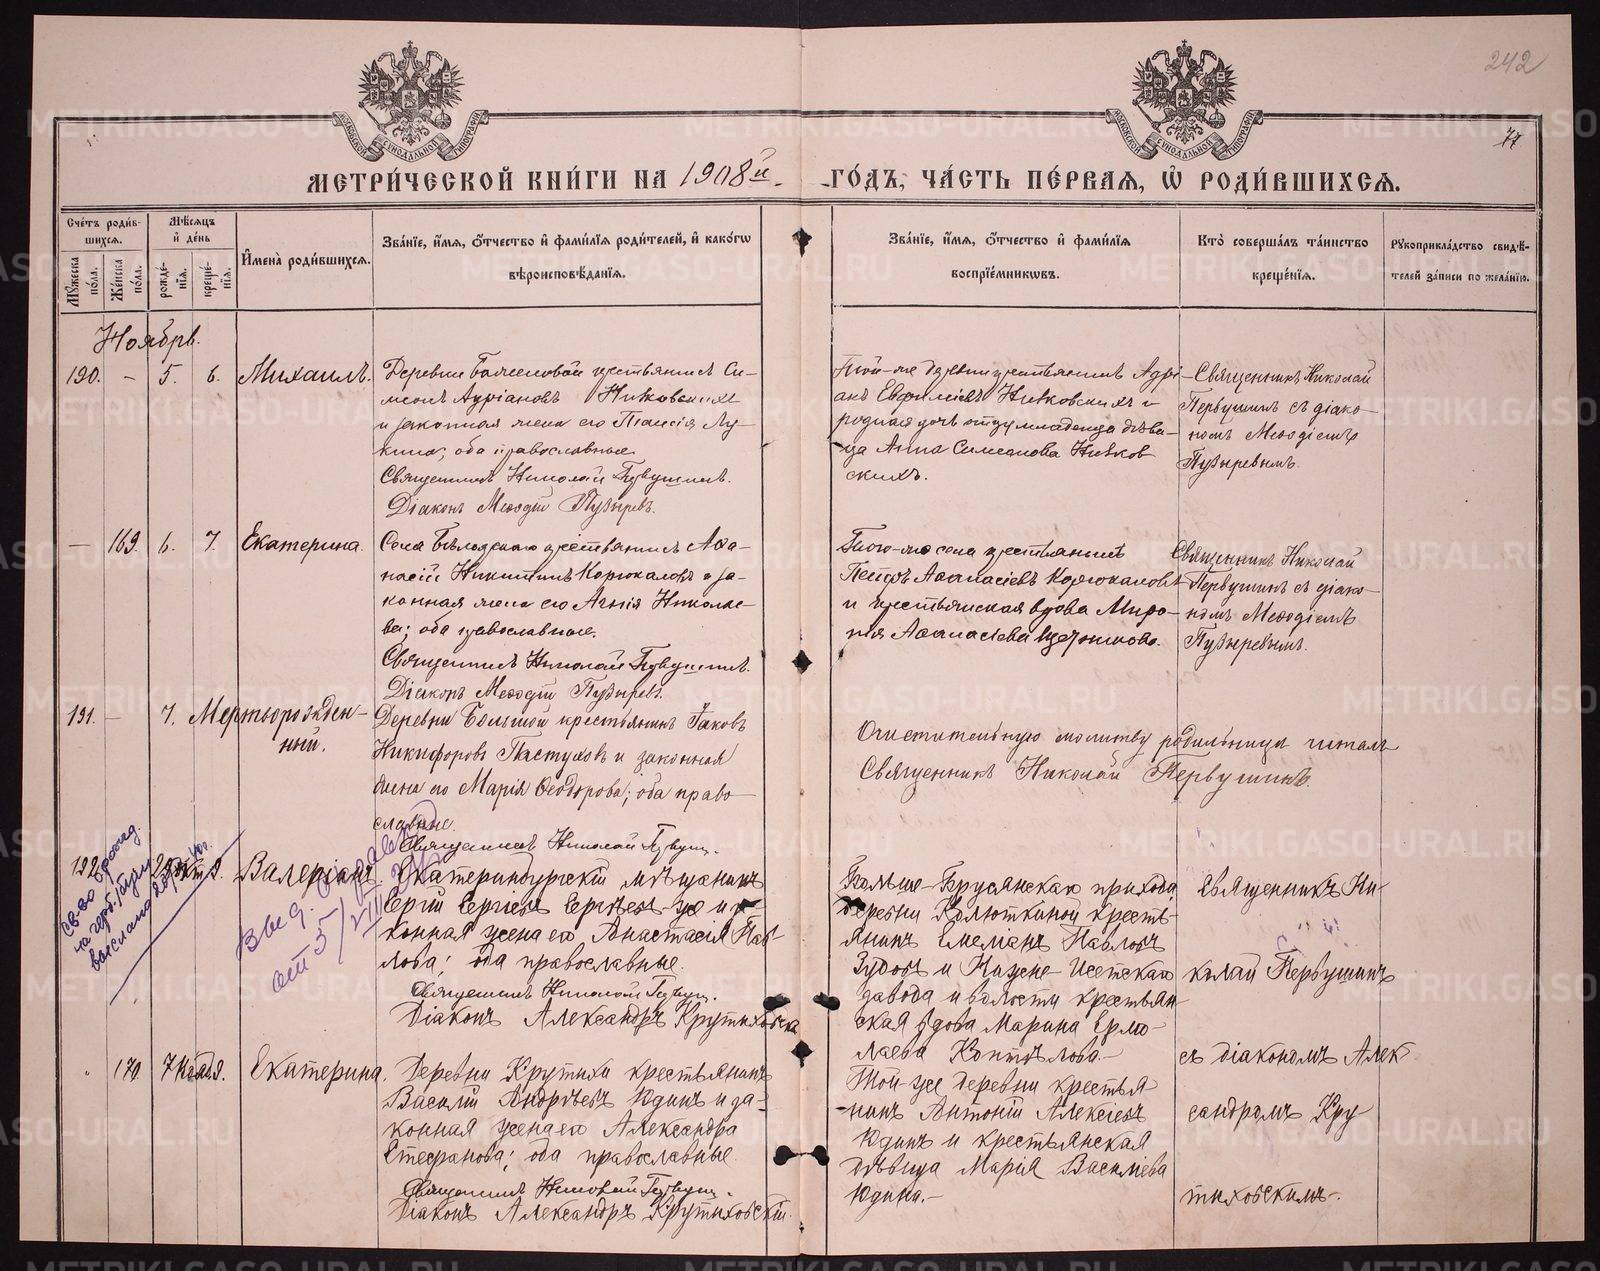 242
77
МЕТРИ́ЧЕСКОЙ КНИ́ГИ НА 1908й
ГО́ДЪ, ЧА́СТЬ ПЕ́РВАЯ, Ѽ РОДИ́ВШИХСѦ.
Счéтъ роди́вшихся.
Му́жеска по́ла.
Же́нска по́ла.
Мѣ́сяцъ и́ де́нь
рожде́нїя.
креще́нїя.
И҆мена̀ роди́вшихся.
Зва́нїе, и҆́мя, ѻ҆́тчество и҆ фами́лїя роди́телей, и҆ како́гѡ
вѣроисповѣ́данїя.
Зва́нїе, и҆́мя, ѻ҆́тчество и҆ фами́лїя
воспрїе́мникѡвъ.
Кто̀ соверша́лъ та́инство
креще́нїя.
Рꙋкоприкла́дство свидѣ́телей за́писи по жела́нїю.
Ноябрь.
190. – 5. 6. Михаилъ.
крестьянинъ Си-
меонъ Адріановъ Ницковскихъ
и законная жена его Таисія Лу-
кина; оба православные.
Священникъ Николай Первушинъ.
Діаконъ Меѳодій Пузыревъ.
Той-же деревни крестьянинъ Адрі-
анъ Евфиміевъ
и
родная дочь отцу младенца дѣви-
ца Анна Симеонова
скихъ.
Священникъ Николай
Первушинъ съ діако-
номъ Меѳодіемъ
Пузыревымъ.
– 169. 6. 7. Екатерина.
Села крестьянинъ Аѳа-
насій Никитинъ Корюкаловъ и за-
конная жена его Агнія Николае-
ва; оба православные.
Священникъ Николай Первушинъ.
Діаконъ Меѳодій Пузыревъ.
Того-же села крестьянинъ
Петръ Аѳанасіевъ Корюкаловъ
и крестьянская вдова Миро-
нія Аѳанасіева
Священникъ Николай
Первушинъ съ діако-
номъ Меѳодіемъ
Пузыревымъ.
191. – 7. Мертворожден-
ный.
Деревни Большой крестьянинъ Іаковъ
Никифоровъ Пастуховъ и законная
жена его Марія Ѳеодорова; оба право
славные.
Священникъ Николай Первуш.
Очистительную молитву родильницѣ читалъ
Священникъ Николай Первушинъ.
192 Валеріанъ
Св-во о рожд.
выслано
Выд.
от 5/VIII
Екатеринбургскій мѣщанинъ
Сергій Сергіевъ Сергѣевъ-же и за-
конная жена его Анастасія Пав-
лова; оба православные.
Священникъ Николай Первуш.
Діаконъ Александръ Крутиховска
Больше-Брусянскаго прихода
деревни Колюткиной кресть-
янинъ Емеліанъ Павловъ
Зубовъ и Нижне-Исетскаго
завода и волости крестьян
ская вдова Марина Ермо-
лаева Коптѣлова.–
Священникъ Ни-
колай Первушинъ
съ діакономъ Алек
сандромъ Кру
тиховскимъ.
170 7 Екатерина.
Деревни Крутихи крестьянинъ
Василій Андреевъ Юдинъ и за-
конная жена его Александра
Стефанова; оба православные.
Священникъ Николай Первуш.
Діаконъ Александръ Крутиховскій.
Той-же деревни крестья
нинъ Антоній Алексіевъ
Юдинъ и крестьянская
дѣвица Марія Васильева
Юдина.–